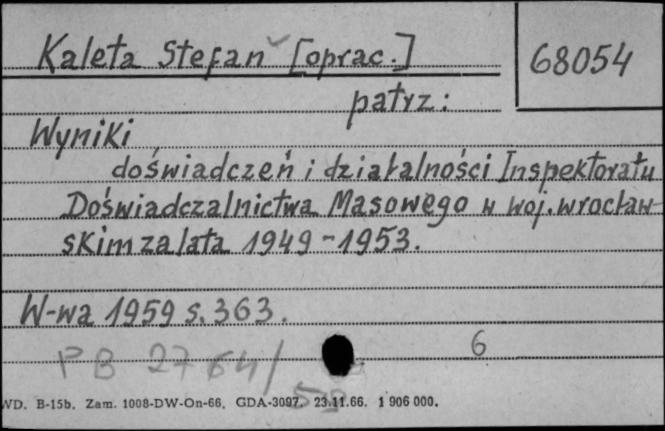 Kaleta Stefan [oprac.]
68054
patrz:
Wyniki
doświadczeń i działalności Inspektoratu
Doświadczalnictwa Masowego w woj. wrocław-
skim za lata 1949-1953.
W-wa 1959 s. 363.
6
PB 2764/
59
WD. B-15b. Zam. 1008-DW-On-66. GDA-3097. 23.11.66. 1 906 000.